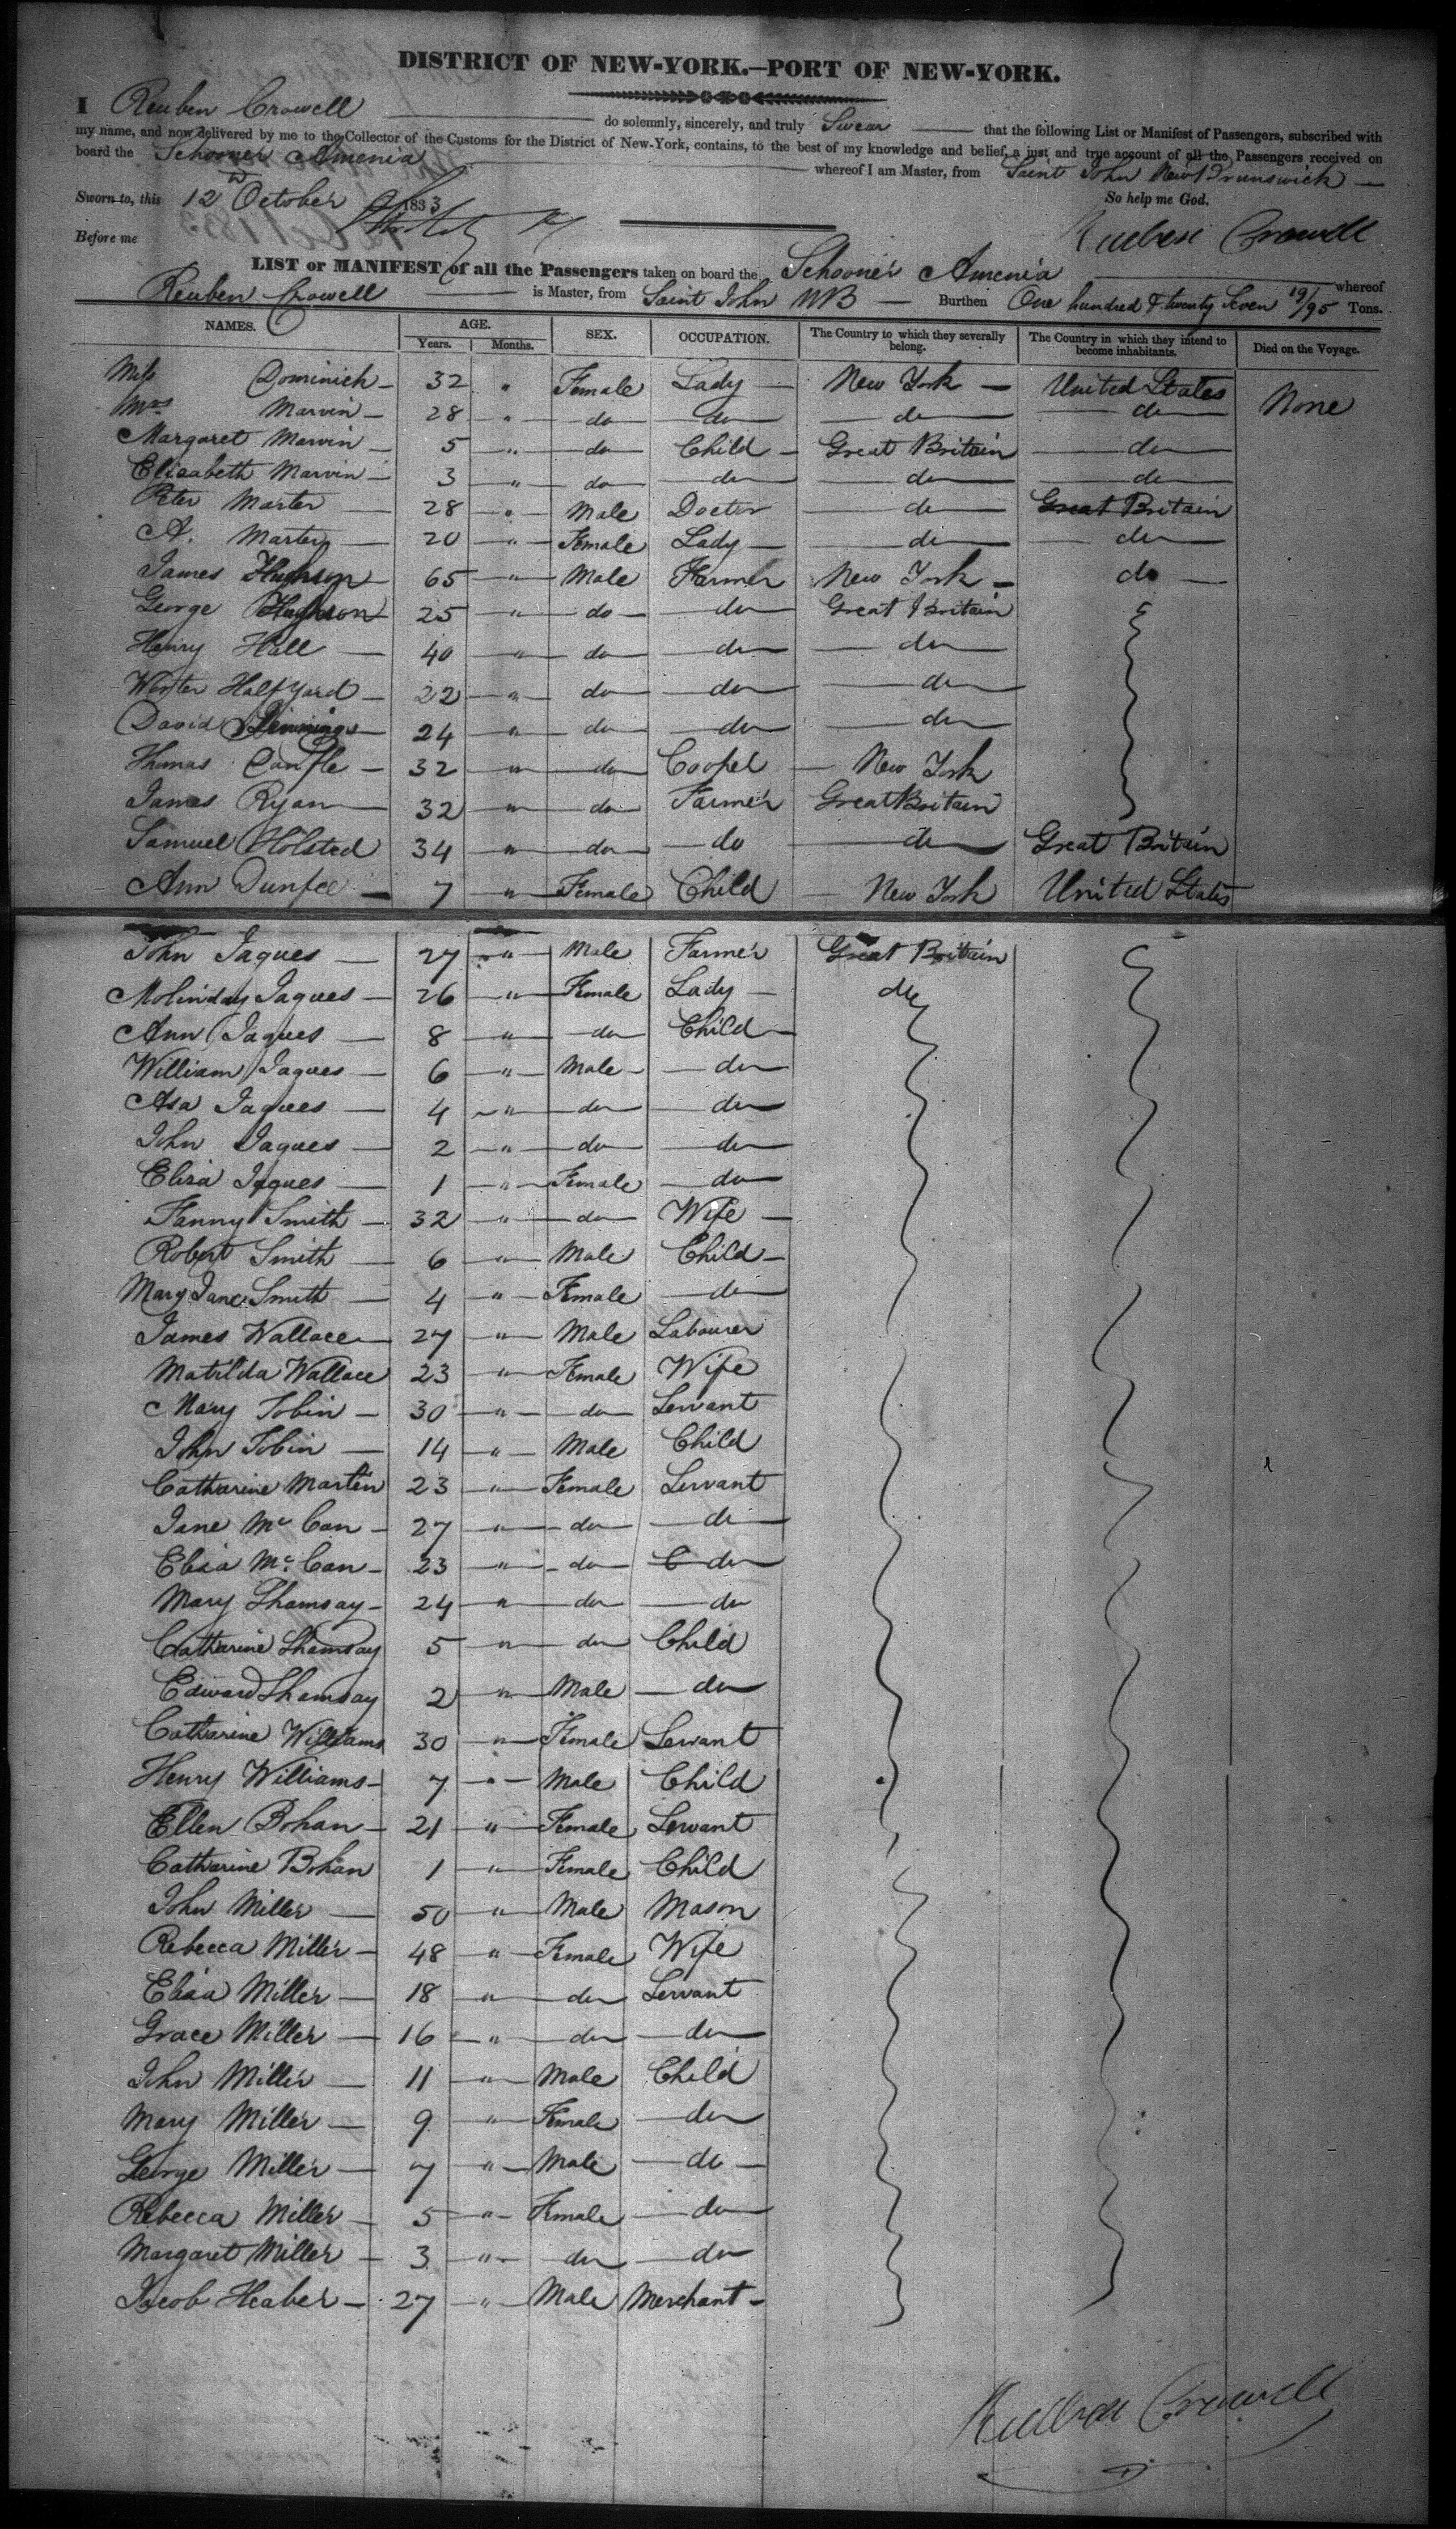 DISTRICT OF NEW-YORK.—PORT OF NEW-YORK.
I Reuben Crowell do solemnly, sincerely, and truly Swear that the following List or Manifest of Passengers, subscribed with
my name, and now delivered by me to the Collector of the Customs for the District of New-York, contains, to the best of my knowledge and belief, a just and true account of all the Passengers received on
board the Schooner Amenia whereof I am Master, from Saint John New Brunswick
Sworn to, this 12 October 1833 So help me God.
Before me Reuben Crowell
LIST or MANIFEST of all the Passengers taken on board the Schooner Amenia whereof
Reuben Crowell is Master, from Saint John NB — Burthen One hundred & twenty Seven 19/95 Tons.
NAMES. AGE. SEX. OCCUPATION. The Country to which they severally belong. The Country in which they intend to become inhabitants. Died on the Voyage.
Years. Months.
Miss Dominick 32 " Female Lady New York United States None
Mrs Marvin 28 " do do do do
Margaret Marvin 5 " do Child Great Britain do
Elizabeth Marvin 3 " do do do do
Peter Marter 28 " Male Doctor do Great Britain
A. Marter 20 " Female Lady do do
James 65 " Male Farmer New York do
George 25 " do do Great Britain
Henry Hall 40 " do do do
Halfyard 22 " do do do
David 24 " do do do
Thomas 32 " do Cooper New York
James Ryan 32 " do Farmer Great Britain
Samuel Holsted 34 " do do do Great Britain
Ann Dunfee 7 " Female Child New York United States
John Jaques 27 " Male Farmer Great Britain
Molinday Jaques 26 " Female Lady do
Ann Jaques 8 " do Child
William Jaques 6 " Male do
Asa Jaques 4 " do do
John Jaques 2 " do do
Eliza Jaques 1 " Female do
Fanny Smith 32 " do Wife
Robert Smith 6 " Male Child
Mary Jane Smith 4 " Female do
James Wallace 27 " Male Labourer
Matilda Wallace 23 " Female Wife
Mary Tobin 30 " do Servant
John Tobin 14 " Male Child
Catharine Martin 23 " Female Servant
Jane McCan 27 " do do
Eliza McCan 23 " do do
Mary Shamsay 24 " do do
Catharine Shamsay 5 " do Child
Edward Shamsay 2 " Male do
Catharine Williams 30 " Female Servant
Henry Williams 7 " Male Child
Ellen Bohan 21 " Female Servant
Catharine Bohan 1 " Female Child
John Miller 50 " Male Mason
Rebecca Miller 48 " Female Wife
Eliza Miller 18 " do Servant
Grace Miller 16 " do do
John Miller 11 " Male Child
Mary Miller 9 " Female do
George Miller 7 " Male do
Rebecca Miller 5 " Female do
Margaret Miller 3 " do do
Jacob Heaber 27 " Male Merchant
Reuben Crowell